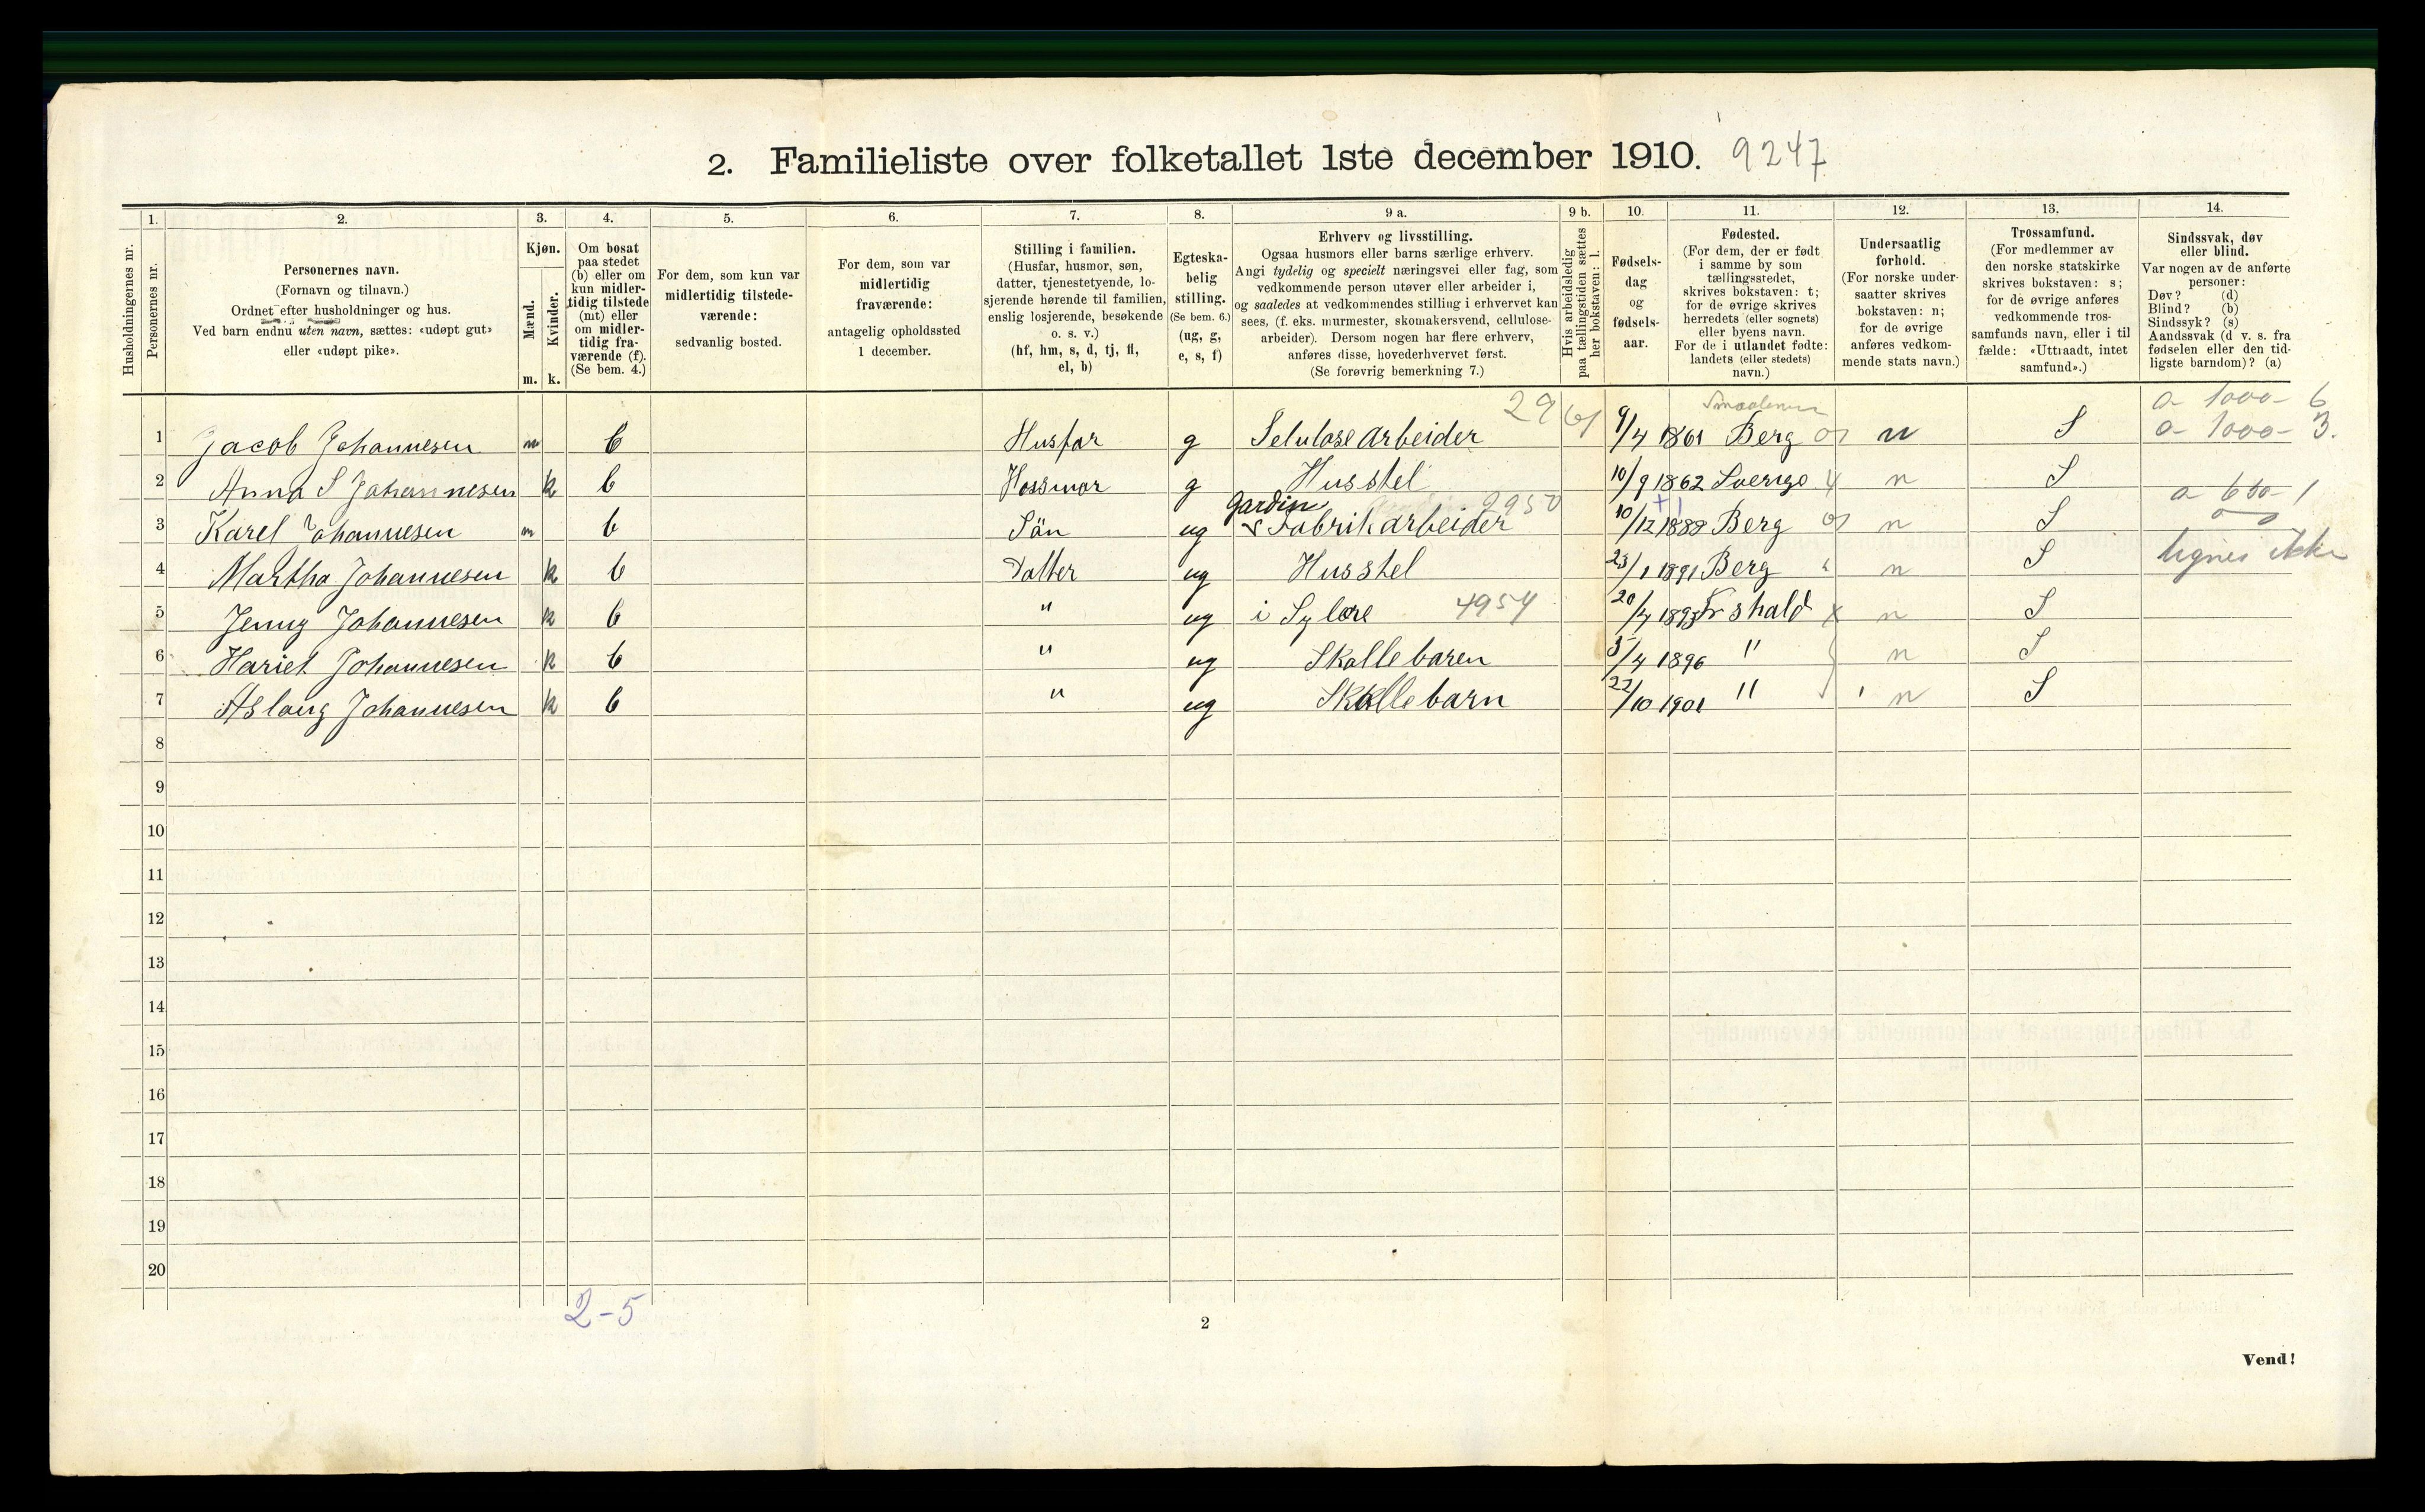 2. Familieliste over folketallet 1ste december 1910. 9247
Husholdningernes nr.
1. Personernes nr.
2. Personernes navn.
(Fornavn og tilnavn.)
Ordnet efter husholdninger og hus.
Ved barn endnu uten navn, sættes: «udøpt gut»
eller «udøpt pike».
3. Kjøn.
Mænd. m.
Kvinder. k.
4. Om bosat
paa stedet
(b) eller om
kun midler-
tidig tilstede
(mt) eller
om midler-
tidig fra-
værende (f).
(Se bem. 4.)
5. For dem, som kun var
midlertidig tilstede-
værende:
sedvanlig bosted.
6. For dem, som var
midlertidig
fraværende:
antagelig opholdssted
1 december.
7. Stilling i familien.
(Husfar, husmor, søn,
datter, tjenestetyende, lo-
sjerende hørende til familien,
enslig losjerende, besøkende
o. s. v.)
(hf, hm, s, d, tj, fl,
el, b)
8. Egteska-
belig
stilling.
(Se bem. 6.)
(ug, g,
e, s, f)
9 a. Erhverv og livsstilling.
Ogsaa husmors eller barns særlige erhverv.
Angi tydelig og specielt næringsvei eller fag, som
vedkommende person utøver eller arbeider i,
og saaledes at vedkommendes stilling i erhvervet kan
sees, (f. eks. murmester, skomakersvend, cellulose-
arbeider). Dersom nogen har flere erhverv,
anføres disse, hovederhvervet først.
(Se forøvrig bemerkning 7.)
9 b. Hvis arbeidsledig
paa tællingstiden sættes
her bokstaven: l.
10. Fødsels-
dag
og
fødsels-
aar.
11. Fødested.
(For dem, der er født
i samme by som
tællingsstedet,
skrives bokstaven: t;
for de øvrige skrives
herredets (eller sognets)
eller byens navn.
For de i utlandet fødte:
landets (eller stedets)
navn.)
12. Undersaatlig
forhold.
(For norske under-
saatter skrives
bokstaven: n;
for de øvrige
anføres vedkom-
mende stats navn.)
13. Trossamfund.
(For medlemmer av
den norske statskirke
skrives bokstaven: s;
for de øvrige anføres
vedkommende tros-
samfunds navn, eller i til
fælde: «Uttraadt, intet
samfund».)
14. Sindssvak, døv
eller blind.
Var nogen av de anførte
personer:
Døv? (d)
Blind? (b)
Sindssyk? (s)
Aandssvak (d v. s. fra
fødselen eller den tid-
ligste barndom)? (a)
29 Smaalenene a 1000- 6
1 Jacob Johannesen m b Husfar g Selulose arbeider 9/4 1861 Berg n S a 1000- 3.
2 Anna S Johannesen k b Hossmor g Husstel 10/9 1862 Sverige n S
Gardin 2950 a 600- 1
3 Karel Johannesen m b Sön ug Fabrik arbeider 10/12 1888 Berg n S
4 Martha Johannesen k b Datter ug Husstel 23/1 1891 Berg n S lignes ikke
5 Jenny Johannesen k b " ug i Sylære 4954 20/4 1893 Fr shald n S
6 Hariet Johannesen k b " ug Skolle baren 5/4 1896 " n S
7 Aslaug Johannesen k b " ug Skolle barn 22/10 1901 " n S
8
9
10
11
12
13
14
15
16
17
18
19
20
2-5
2
Vend!